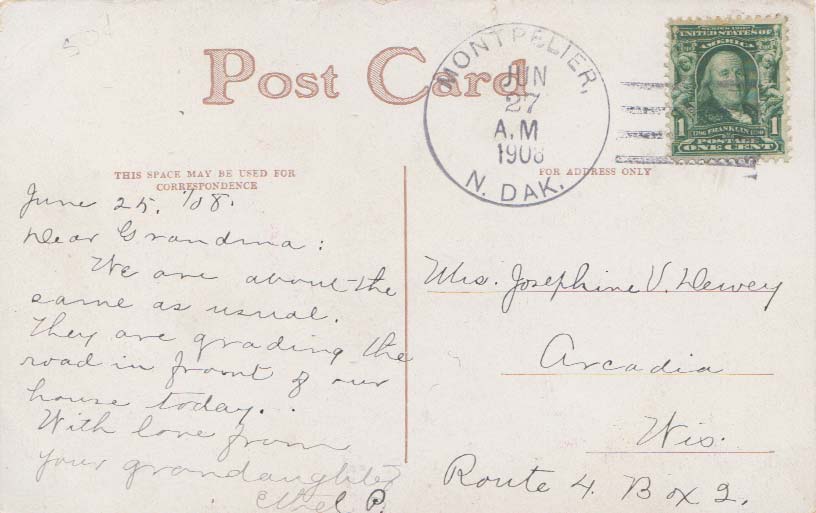 Post Card
MONTPELIER,
JUN
27
A.M
1908
N. DAK.
SERIES 1902
UNITED STATES OF
AMERICA
1 1706 FRANKLIN 1790 1
POSTAGE
ONE CENT
THIS SPACE MAY BE USED FOR
CORRESPONDENCE
FOR ADDRESS ONLY
June 25, '08.
Dear Grandma:
We are about the
same as usual.
They are grading the
road in front of our
house today.
With love from
your grandaughter
Ethel P.
Mrs. Josephine V. Dewey
Arcadia
Wis.
Route 4. Box 2.